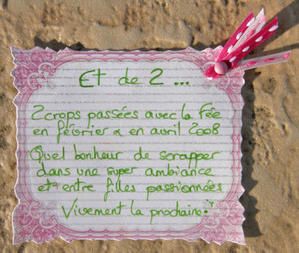 Et de 2 ...
2 crops passées avec la Fée
en février & en avril 2008
Quel bonheur de scrapper
dans une super ambiance
et entre filles passionnées
Vivement la prochaine !